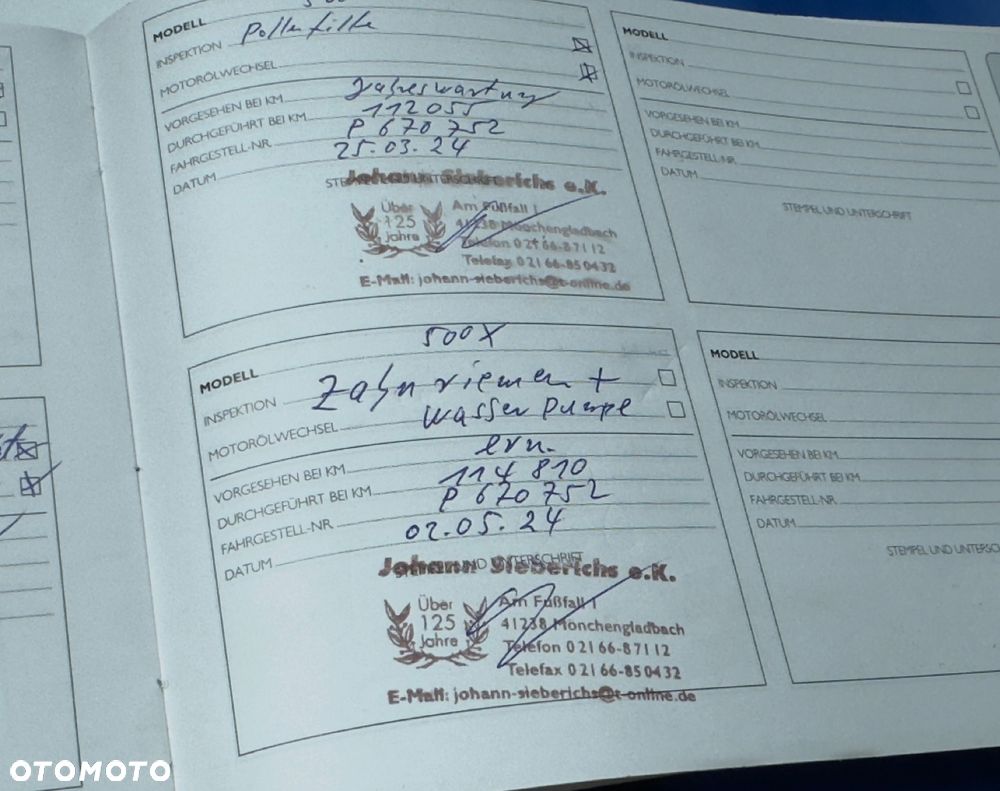 MODELL
INSPEKTION Pollenfilter
MOTORÖLWECHSEL
VORGESEHEN BEI KM Jahreswartung
DURCHGEFÜHRT BEI KM 112055
FAHRGESTELL-NR. P 670 752
DATUM 25.03.24
Johann Sieberichs e.K.
Über 125 Jahre
Am Fußfall 1
41238 Mönchengladbach
Telefon 0 21 66-8 71 12
Telefax 0 21 66-85 04 32
E-Mail: johann-sieberichs@t-online.de
MODELL 500X
INSPEKTION Zahnriemen +
MOTORÖLWECHSEL Wasserpumpe
VORGESEHEN BEI KM ern.
DURCHGEFÜHRT BEI KM 114 810
FAHRGESTELL-NR. P 670 752
DATUM 02.05.24
STEMPEL UND UNTERSCHRIFT
Johann Sieberichs e.K.
Über 125 Jahre
Am Fußfall 1
41238 Mönchengladbach
Telefon 0 21 66-8 71 12
Telefax 0 21 66-85 04 32
E-Mail: johann-sieberichs@t-online.de
MODELL
INSPEKTION
MOTORÖLWECHSEL
VORGESEHEN BEI KM
DURCHGEFÜHRT BEI KM
FAHRGESTELL-NR.
DATUM
STEMPEL UND UNTERSCHRIFT
MODELL
INSPEKTION
MOTORÖLWECHSEL
VORGESEHEN BEI KM
DURCHGEFÜHRT BEI KM
FAHRGESTELL-NR.
DATUM
STEMPEL UND UNTERSC
OTOMOTO